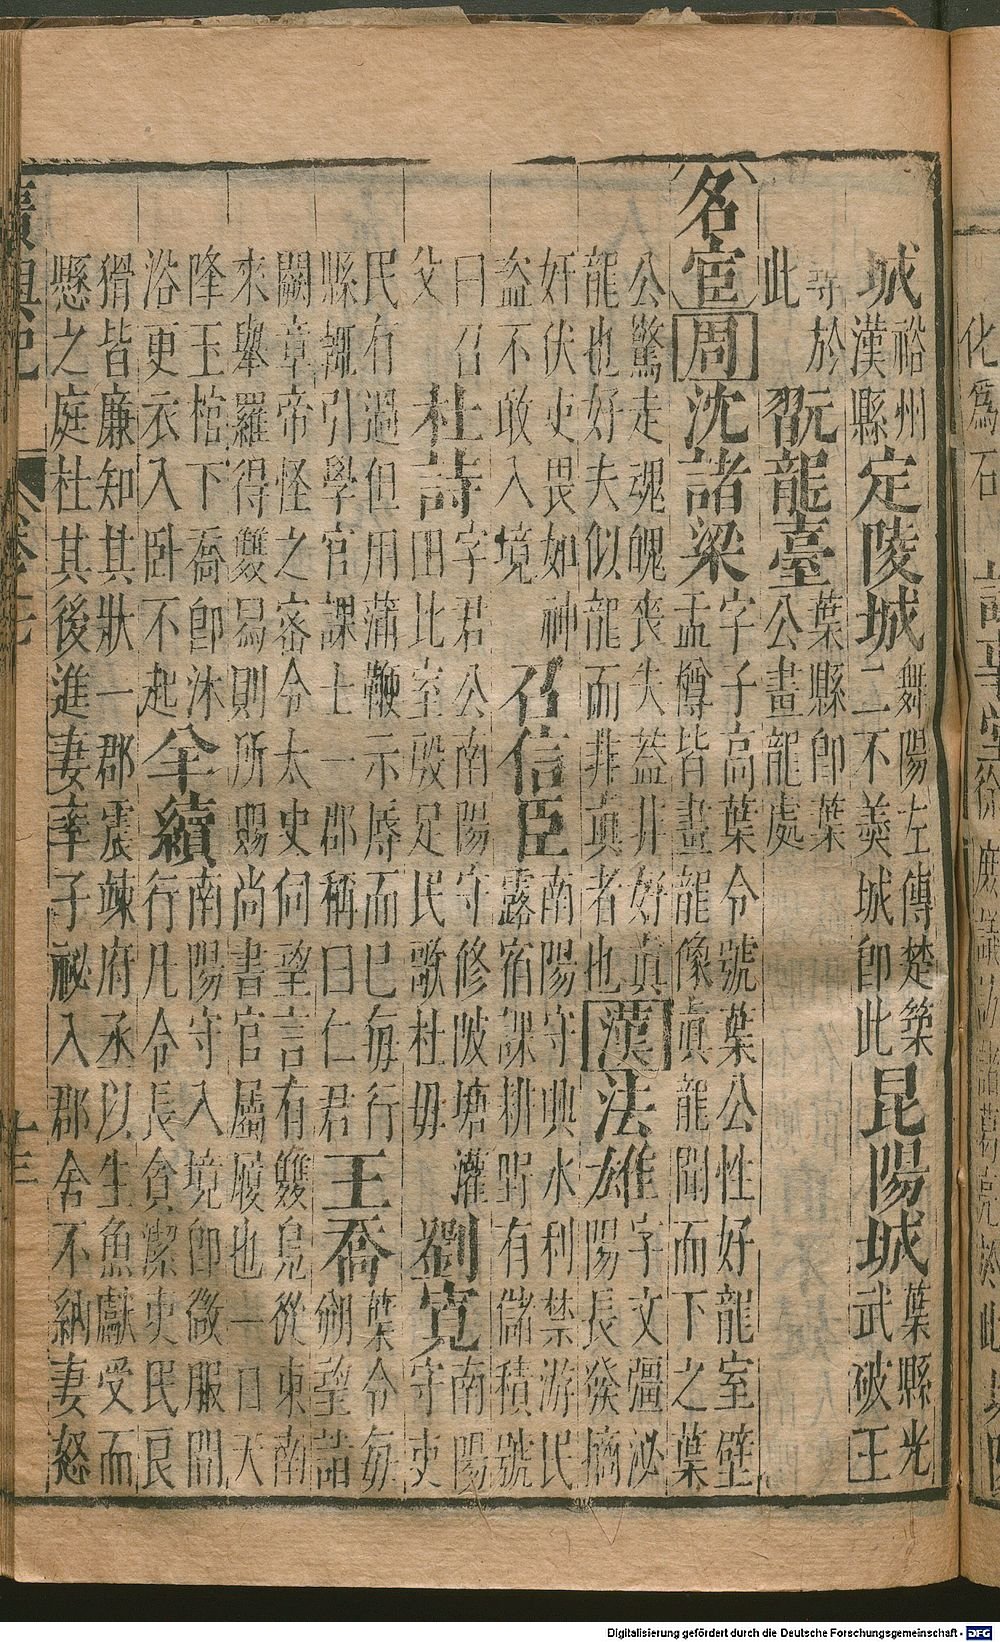 城裕州漢縣定陵城舞陽左傳楚築二不羹城即此昆陽城葉縣光武破王
尋於此翫龍臺葉縣即葉公畫龍處
名宦周沈諸梁字子高葉令號葉公性好龍室壁盂樽皆畫龍像真龍聞而下之葉
公驚走魂魄喪失蓋非好真龍也好夫似龍而非真者也漢法雄字文彊泌陽長發擿
奸伏吏畏如神盜不敢入境召信臣南陽守興水利禁游民露宿課耕野有儲積號
曰召父杜詩字君公南陽守修陂塘灌田比室殷足民歌杜毋劉寬南陽守吏
民有過但用蒲鞭示辱而已每行縣輒引學官課士一郡稱曰仁君王喬葉令每朔望詣
闕章帝怪之密令太史伺望言有雙鳧從東南來舉羅得雙舄則所賜尚書官屬履也一日天
降玉棺下喬即沐浴更衣入臥不起羊續南陽守入境即微服間行凡令長貪潔吏民良
猾皆廉知其狀一郡震竦府丞以生魚獻受而懸之庭杜其後進妻率子祕入郡舍不納妻怒
十三
化為石
Digitalisierung gefördert durch die Deutsche Forschungsgemeinschaft - DFG